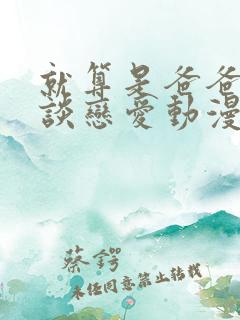 就算是爸爸
談戀愛動漫
蔡鍔
未经同意禁止转载